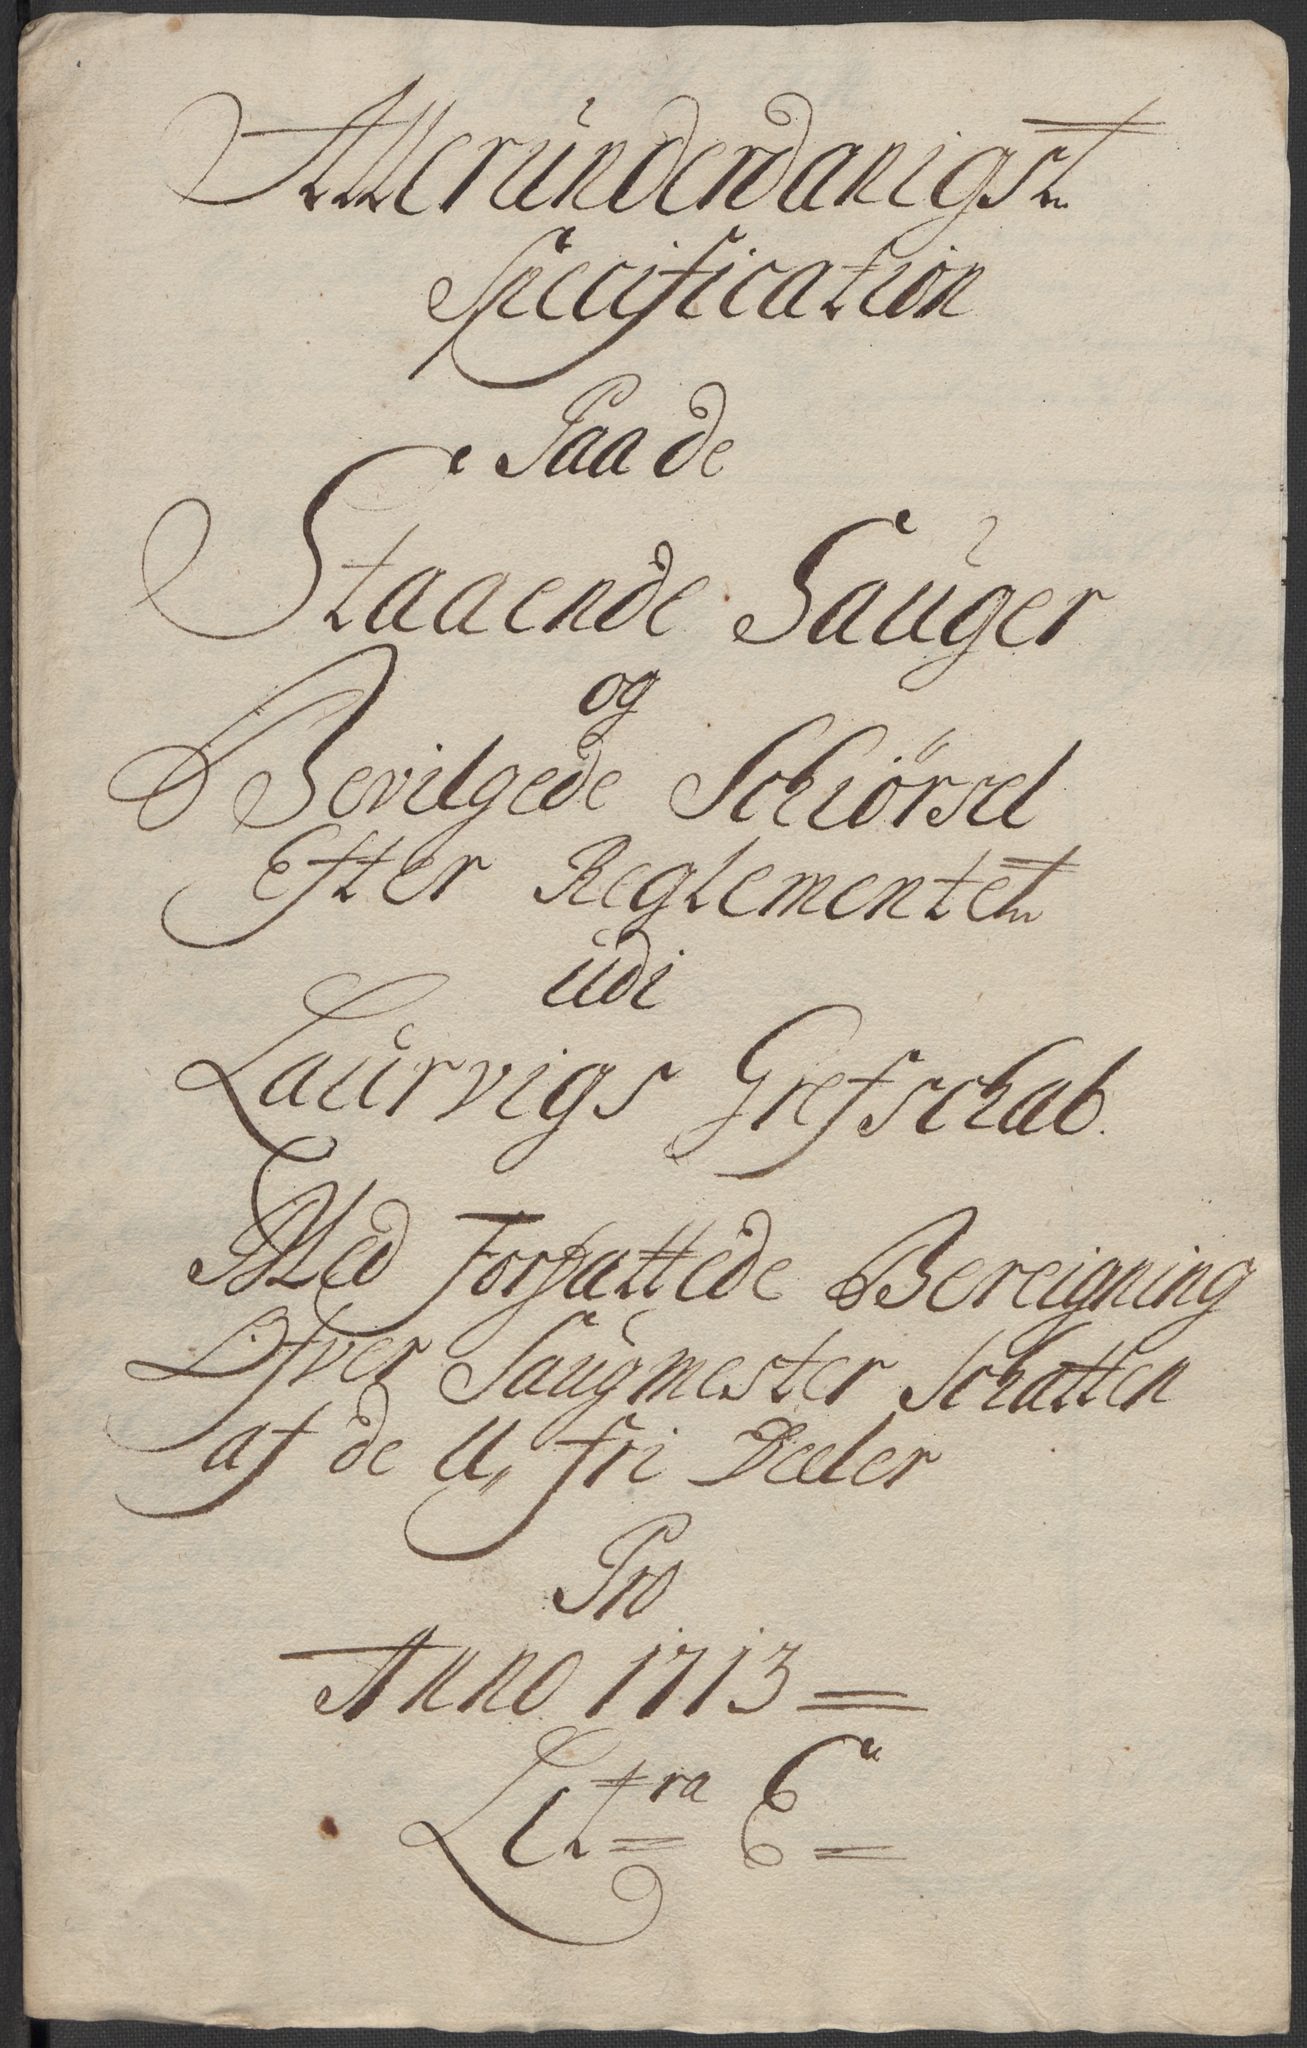 Allerunderdanigst
Specification
Paa de
Staaende Sauger
og
Bevilgede Schiörsel
Efter Reglementet
udi
Laurvigs Grefschab.
Med Forfattede Bereigning
Ofver Saugmester Schatten
af de U, fri Deeler
Pro
Anno 1713
Litra E